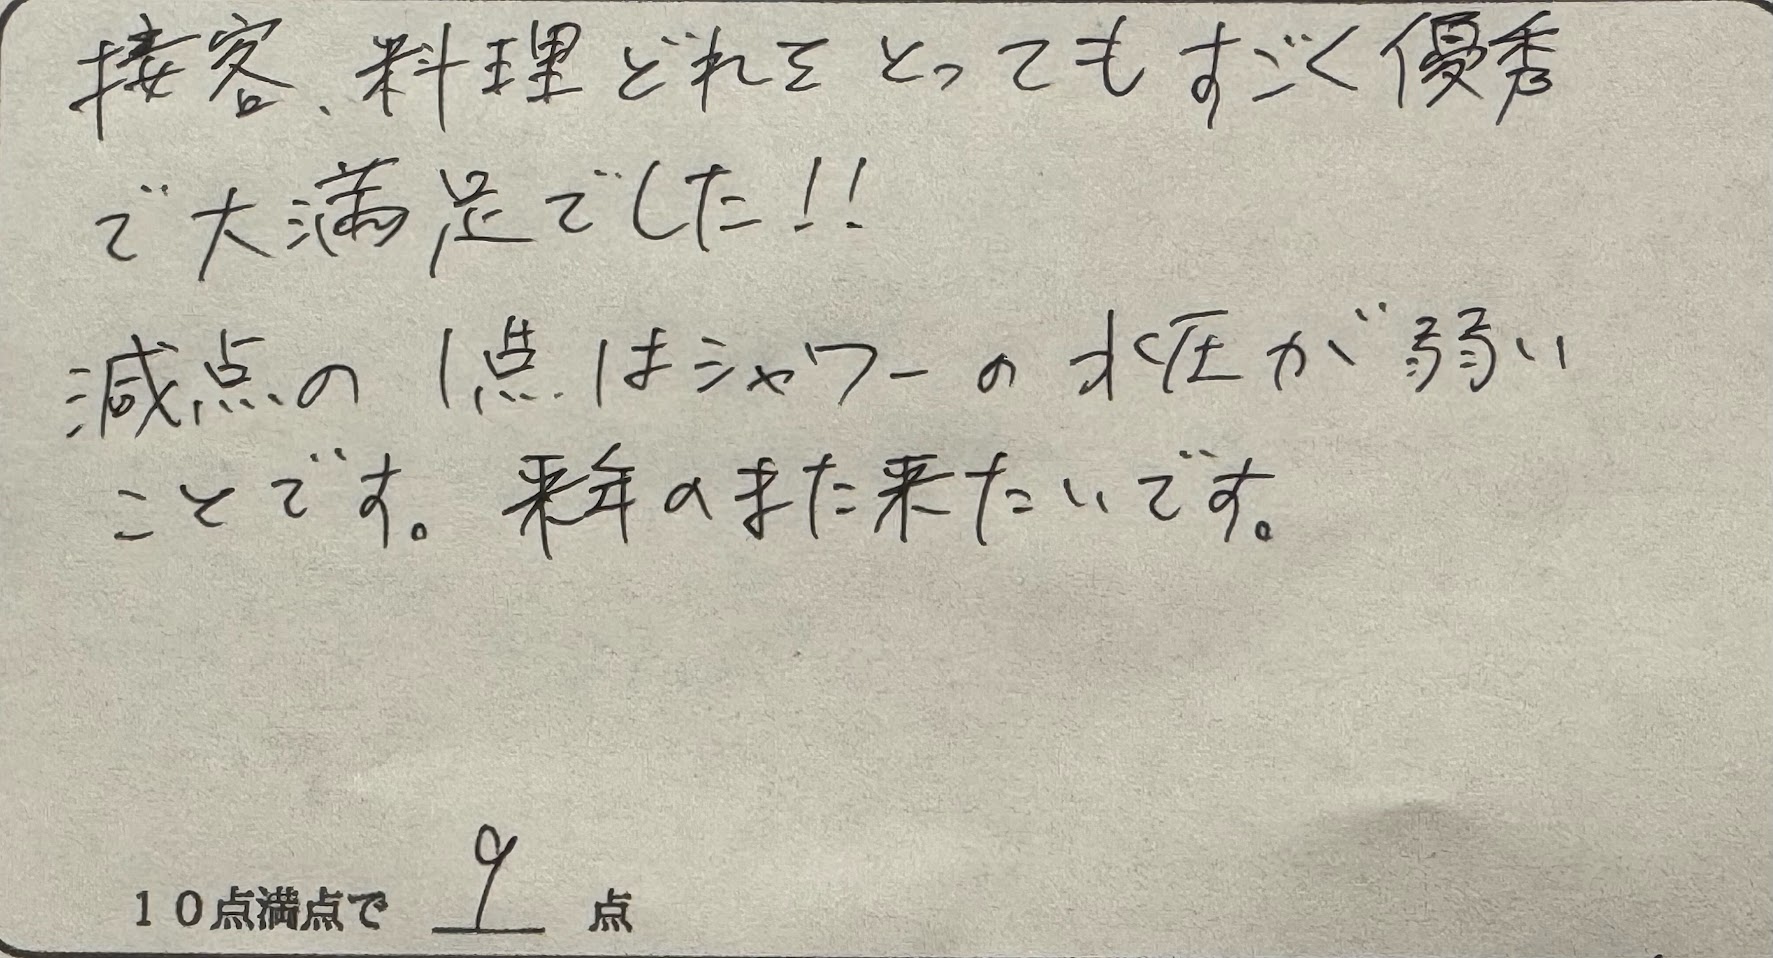 接客、料理どれをとってもすごく優秀
で大満足でした!!
減点の1点はシャワーの水圧が弱い
ことです。来年のまた来たいです。
10点満点で 9 点